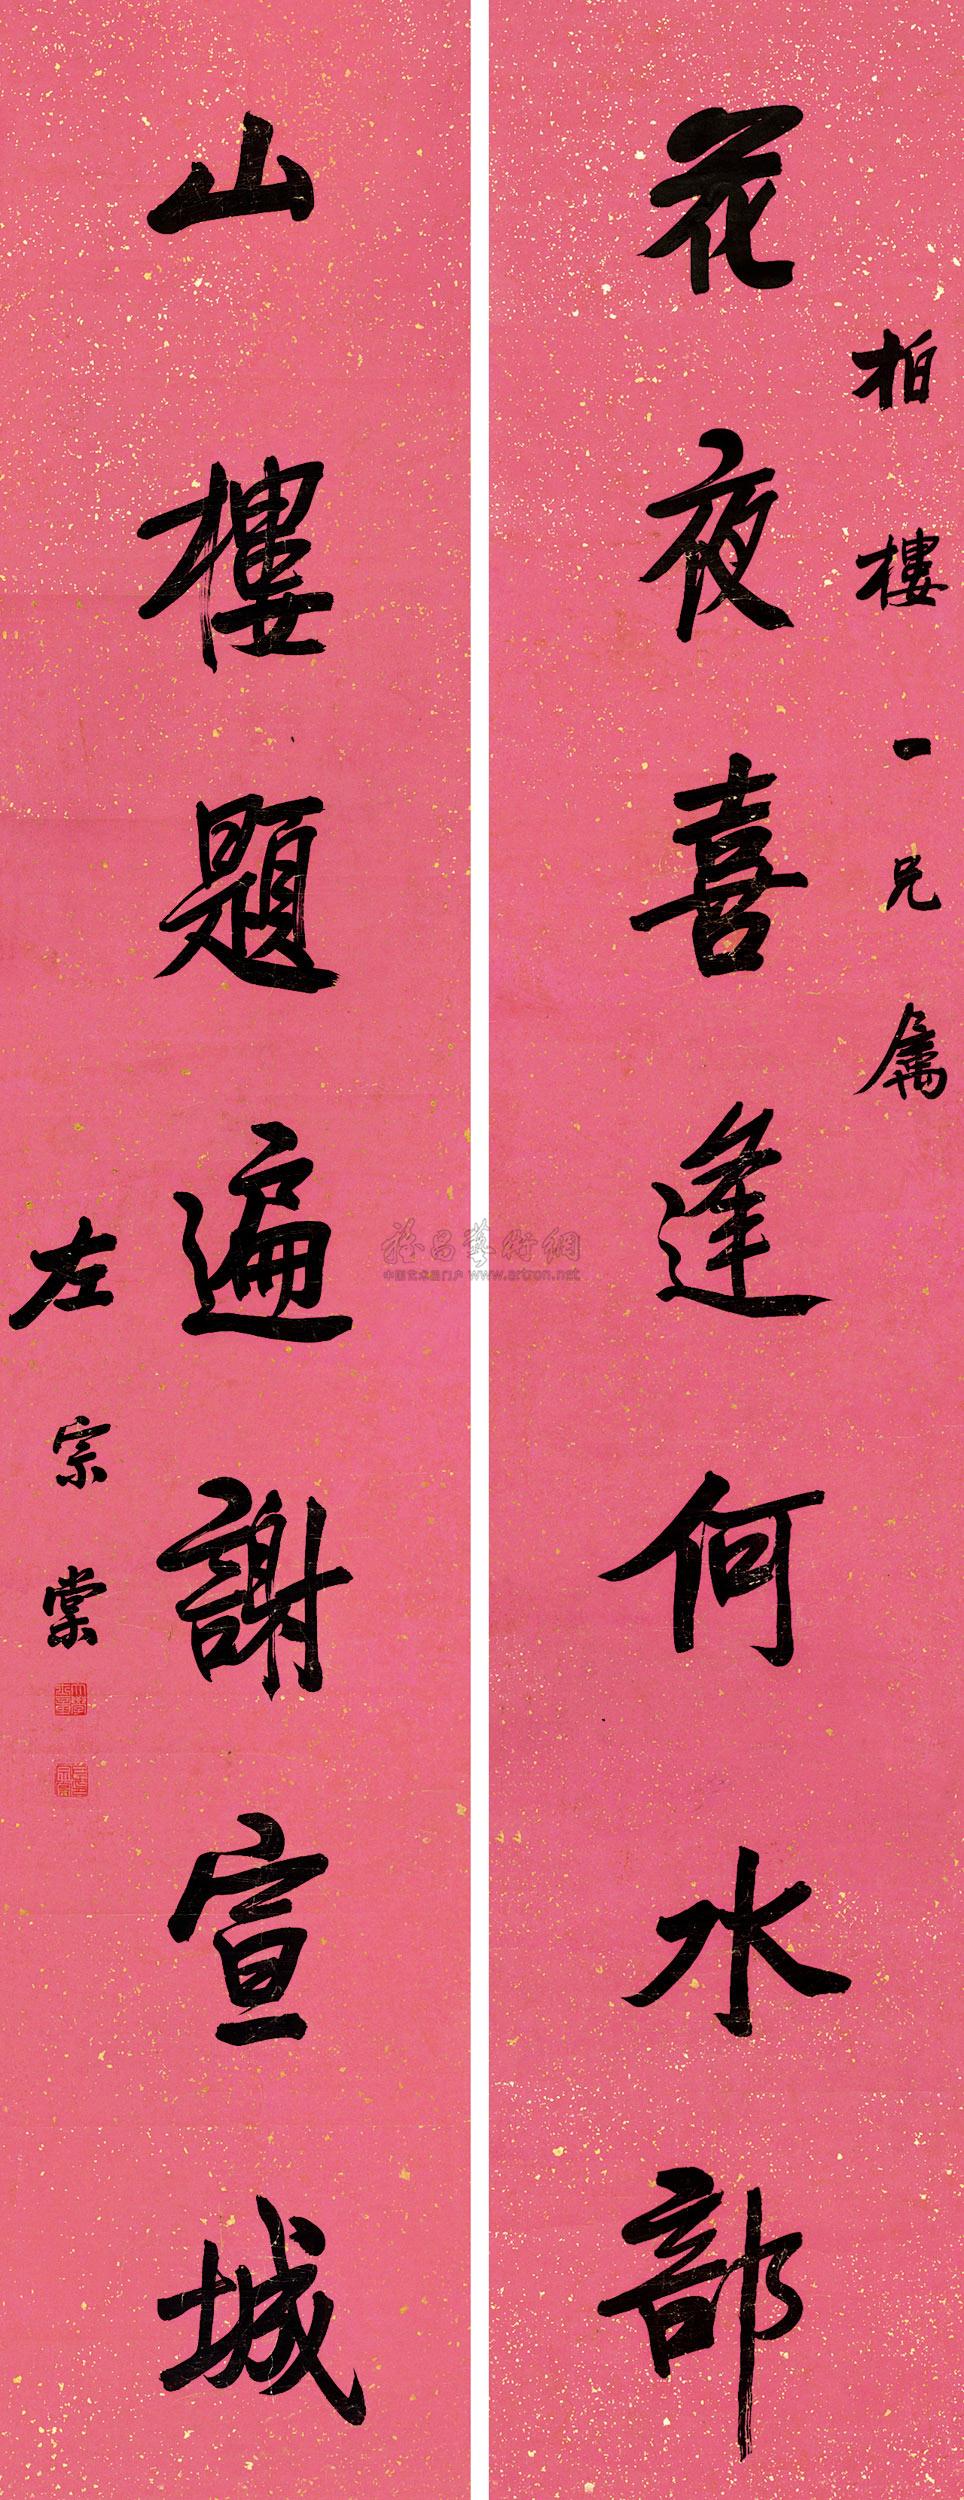 柏樓一兄屬
花夜喜逢何水部
山樓題遍謝宣城
左宗棠
中国艺术品门户 www.artron.net